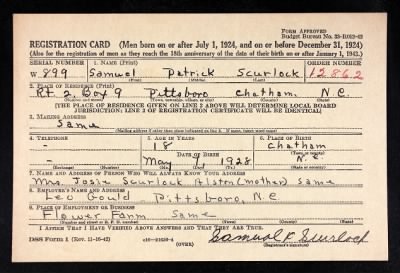 FORM APPROVED
Budget Bureau No. 33-R012-42
REGISTRATION CARD (Men born on or after July 1, 1924, and on or before December 31, 1924)
(Also for the registration of men as they reach the 18th anniversary of the date of their birth on or after January 1, 1943.)
SERIAL NUMBER 1. NAME (Print) ORDER NUMBER
W 899 Samuel Patrick Scurlock 12862
2. PLACE OF RESIDENCE (Print)
Rt 2, Box 9 Pittsboro Chatham. N.C.
[THE PLACE OF RESIDENCE GIVEN ON LINE 2 ABOVE WILL DETERMINE LOCAL BOARD
JURISDICTION; LINE 2 OF REGISTRATION CERTIFICATE WILL BE IDENTICAL]
3. MAILING ADDRESS
Same
[Mailing address if other than place indicated on line 2. If same, insert word same]
4. TELEPHONE 5. AGE IN YEARS 6. PLACE OF BIRTH
- 18 Chatham
DATE OF BIRTH (Town or county)
- May 1 1928 N.C.
(Exchange) (Number) (Mo.) (Day) (Yr.) (State or country)
7. NAME AND ADDRESS OF PERSON WHO WILL ALWAYS KNOW YOUR ADDRESS
Mrs. Josie Scurlock Alston (mother) Same
8. EMPLOYER'S NAME AND ADDRESS
Leo Gould Pittsboro, N.C
9. PLACE OF EMPLOYMENT OR BUSINESS
Flower Farm Same
(Number and street or R. F. D. number) (Town) (County) (State)
I AFFIRM THAT I HAVE VERIFIED ABOVE ANSWERS AND THAT THEY ARE TRUE.
DSS Form 1 (Rev. 11-16-42) Samuel P. Scurlock
(Registrant's signature)